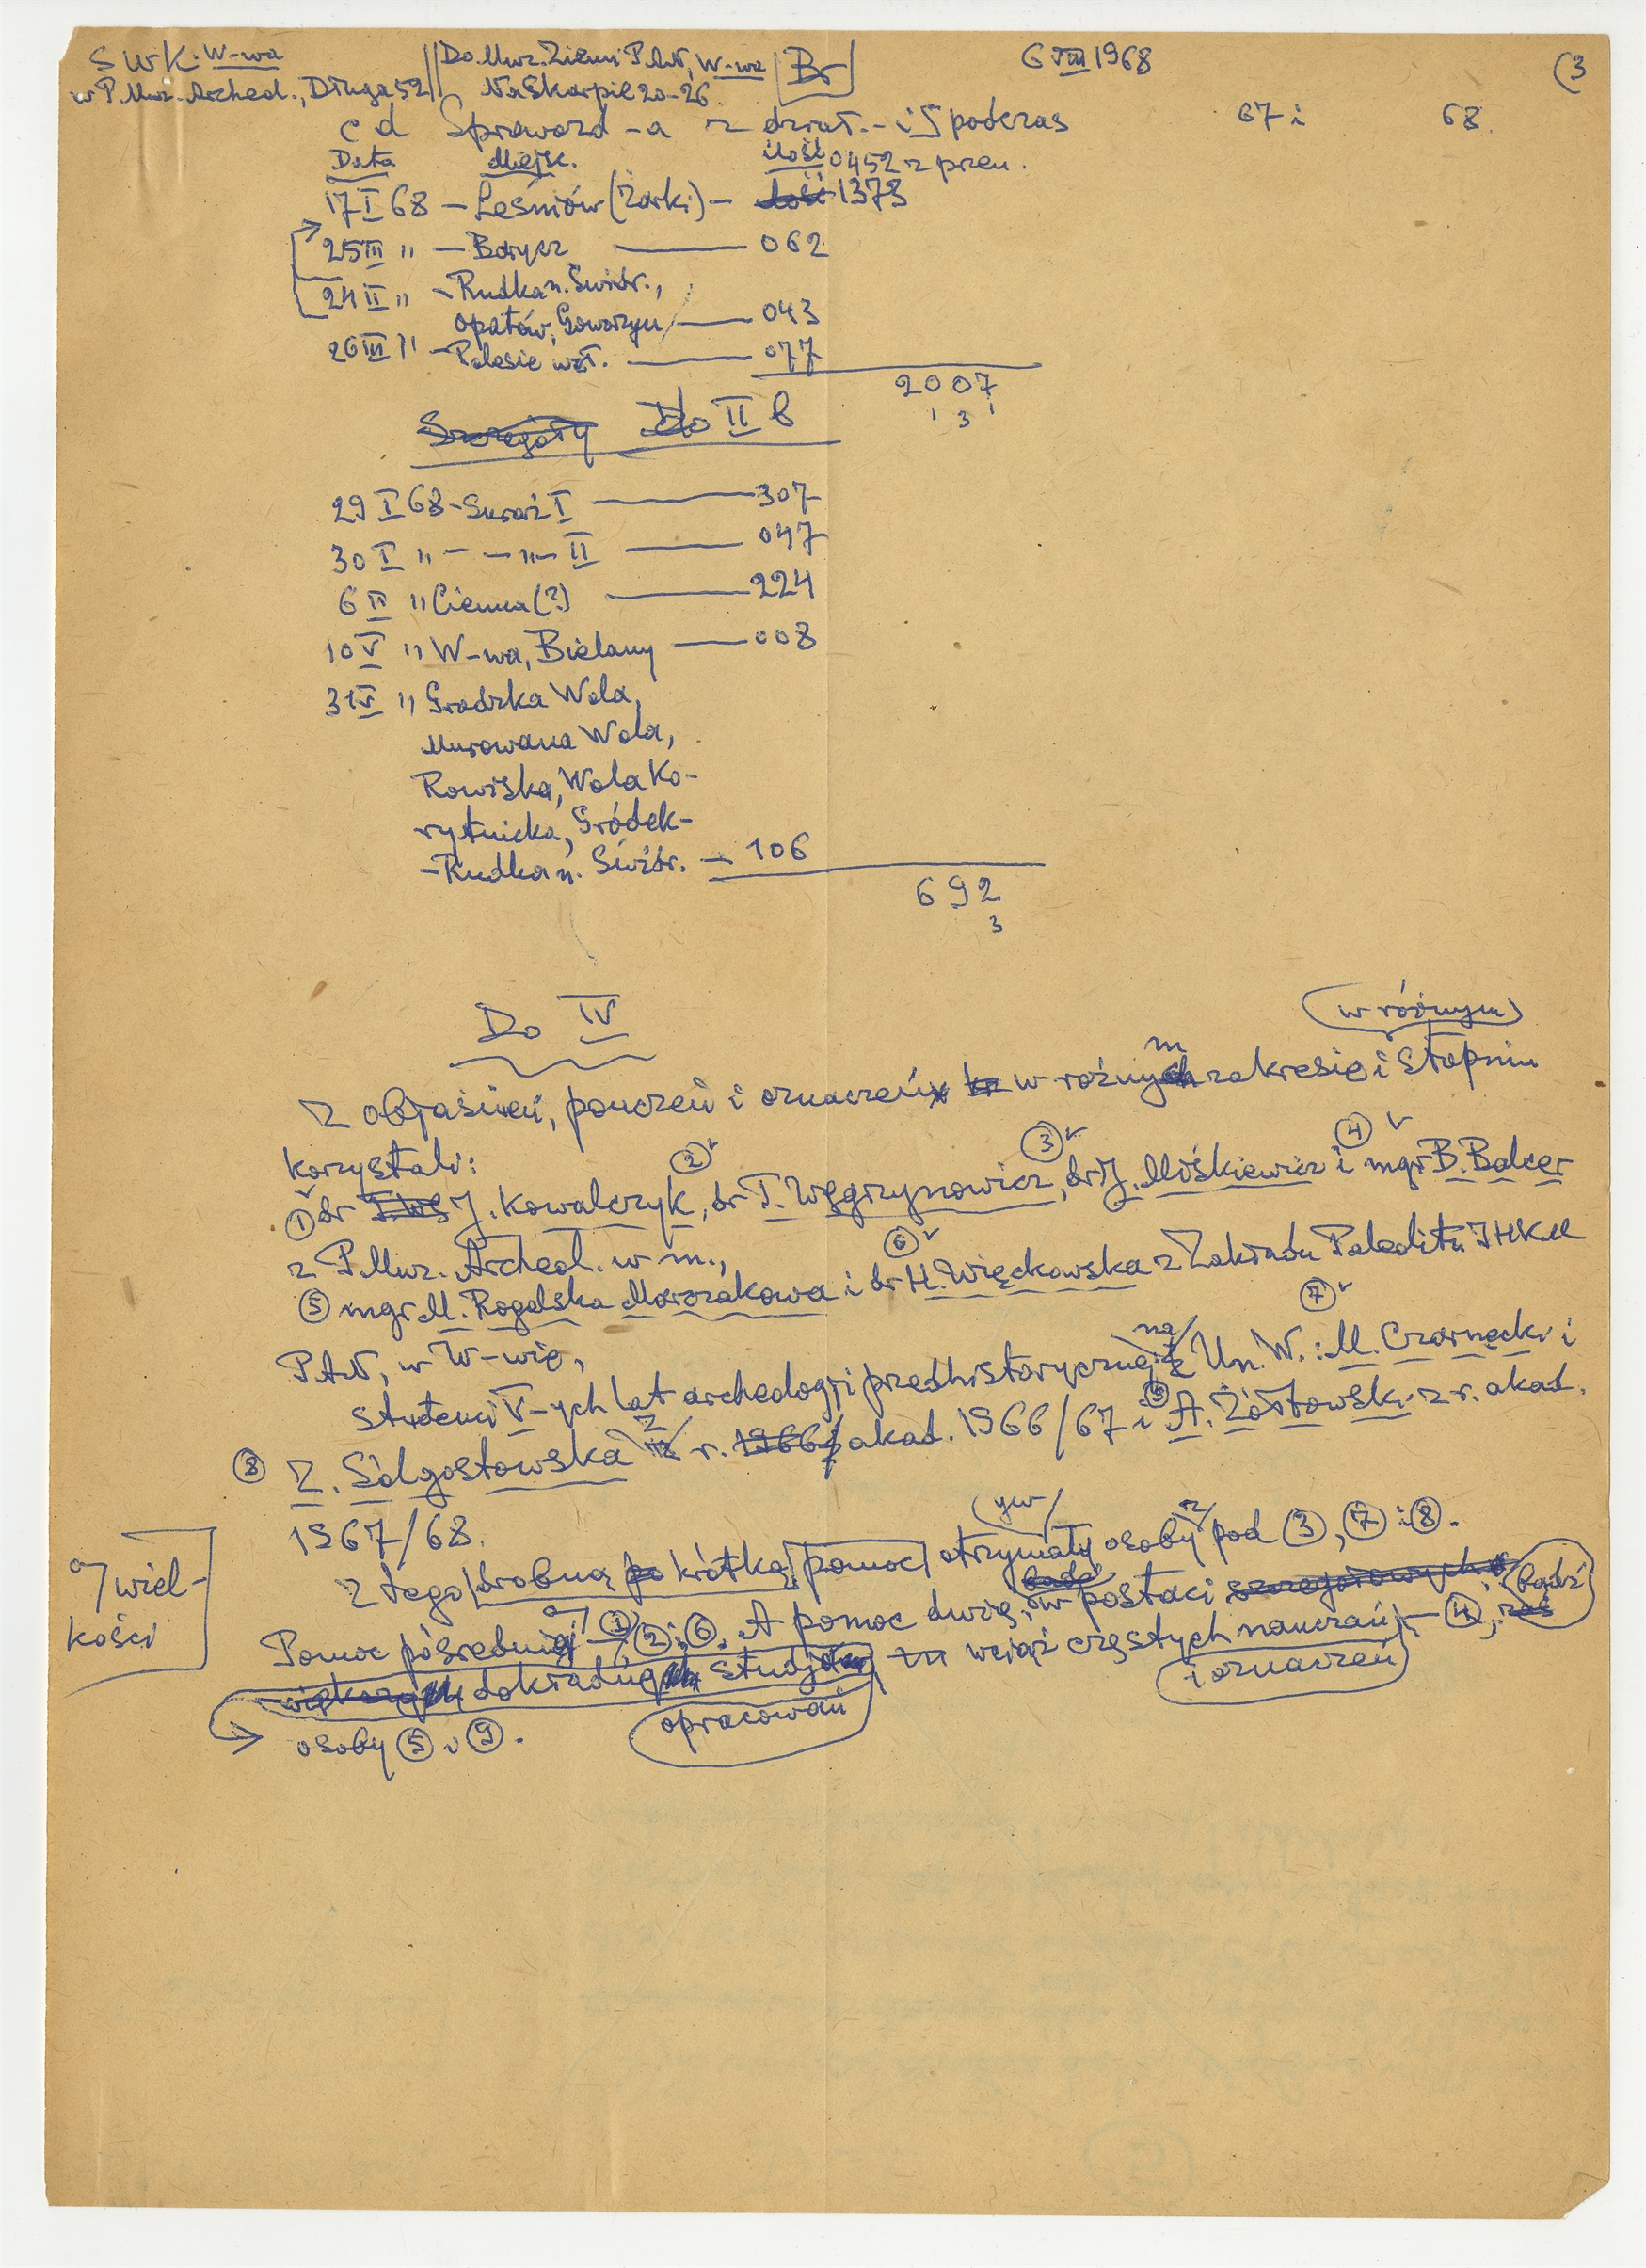 SWK. W-wa || Do. Muz. Ziemi PAN, W-wa | Br | 6 VIII 1968 (3
w P. Muz. Archeol., Długa 52 || Na Skarpie 20-26
c d Sprawozd-a z dział.-i S podczas 67 i 68.
Data Miejsc. ilość 0452 z przen.
17 I 68 – Leśniów (Żarki) – ilość 1373
25 III " – Barycz — 062
24 II " – Rudka n. Świdr.,
Opatów, Goworzyn — 043
26 III " – Polesie wzł. — 077
2007
1 3 1
Szczegóły Do II b
29 I 68 – Suraż I — 307
30 I " – – " – II — 047
6 II " Ciemna (?) — 224
10 V " W-wa, Bielany — 008
31 V " Grodzka Wola,
Murowana Wola,
Rowiska, Wola Ko-
rytnicka, Gródek-
-Rudka n. Świdr. – 106
692
3
Do IV
w różnym
m
Z objaśnień, pouczeń i oznaczeń w różnych zakresie i stopniu
korzystali: ② ③ ④
① dr J. Kowalczyk, dr T. Węgrzynowicz, dr J. Miśkiewicz i mgr B. Balcer
z P. Muz. Archeol. w m., ⑥
⑤ mgr M. Rogalska Marczakowa i dr H. Więckowska z Zakładu Paleolitu IHKM
PAN, w W-wie, ⑦
na
studenci V-ych lat archeologji predhistorycznej z Un. W.: M. Czarnecki i
z ⑨
⑧ Z. Sólgostowska r. 1966/ akad. 1966/67 i A. Żółtowski z r. akad.
1967/68.
yw z
Z tego drobną po krótką pomoc otrzymały osoby pod ③, ⑦ i ⑧.
a) wiel-
kości
Pomoc pośrednią a) – ①, ② i ⑥. A pomoc dużą, bądź w postaci szczegółowych bądź
większych dokładnych studjów, wciąż częstych nauczań – ④, zaś
i oznaczeń
opracowań
osoby ⑤ i ⑨.